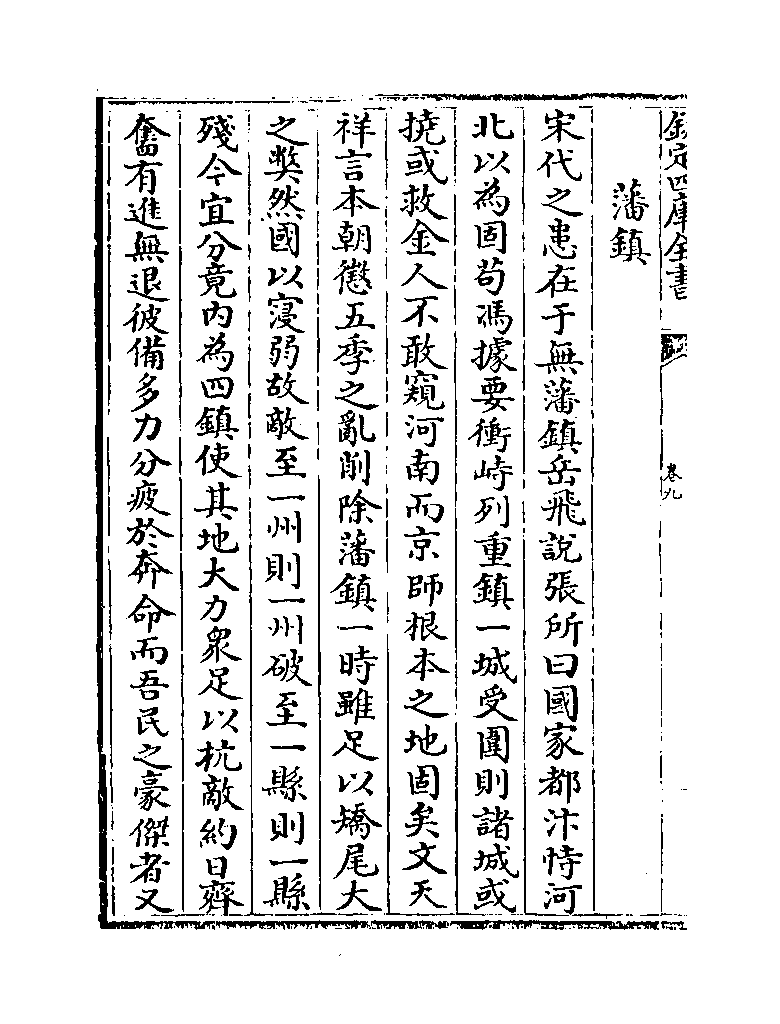 欽定四庫全書
卷九
藩鎮
宋代之患在于無藩鎮岳飛說張所曰國家都汴恃河
北以為固苟馮據要衝峙列重鎮一城受圍則諸城或
撓或救金人不敢窺河南而京師根本之地固矣文天
祥言本朝懲五季之亂削除藩鎮一時雖足以矯尾大
之獘然國以寖弱故敵至一州則一州破至一縣則一縣
殘今宜分竟內為四鎮使其地大力衆足以抗敵約日齊
奮有進無退彼備多力分疲於奔命而吾民之豪傑者又